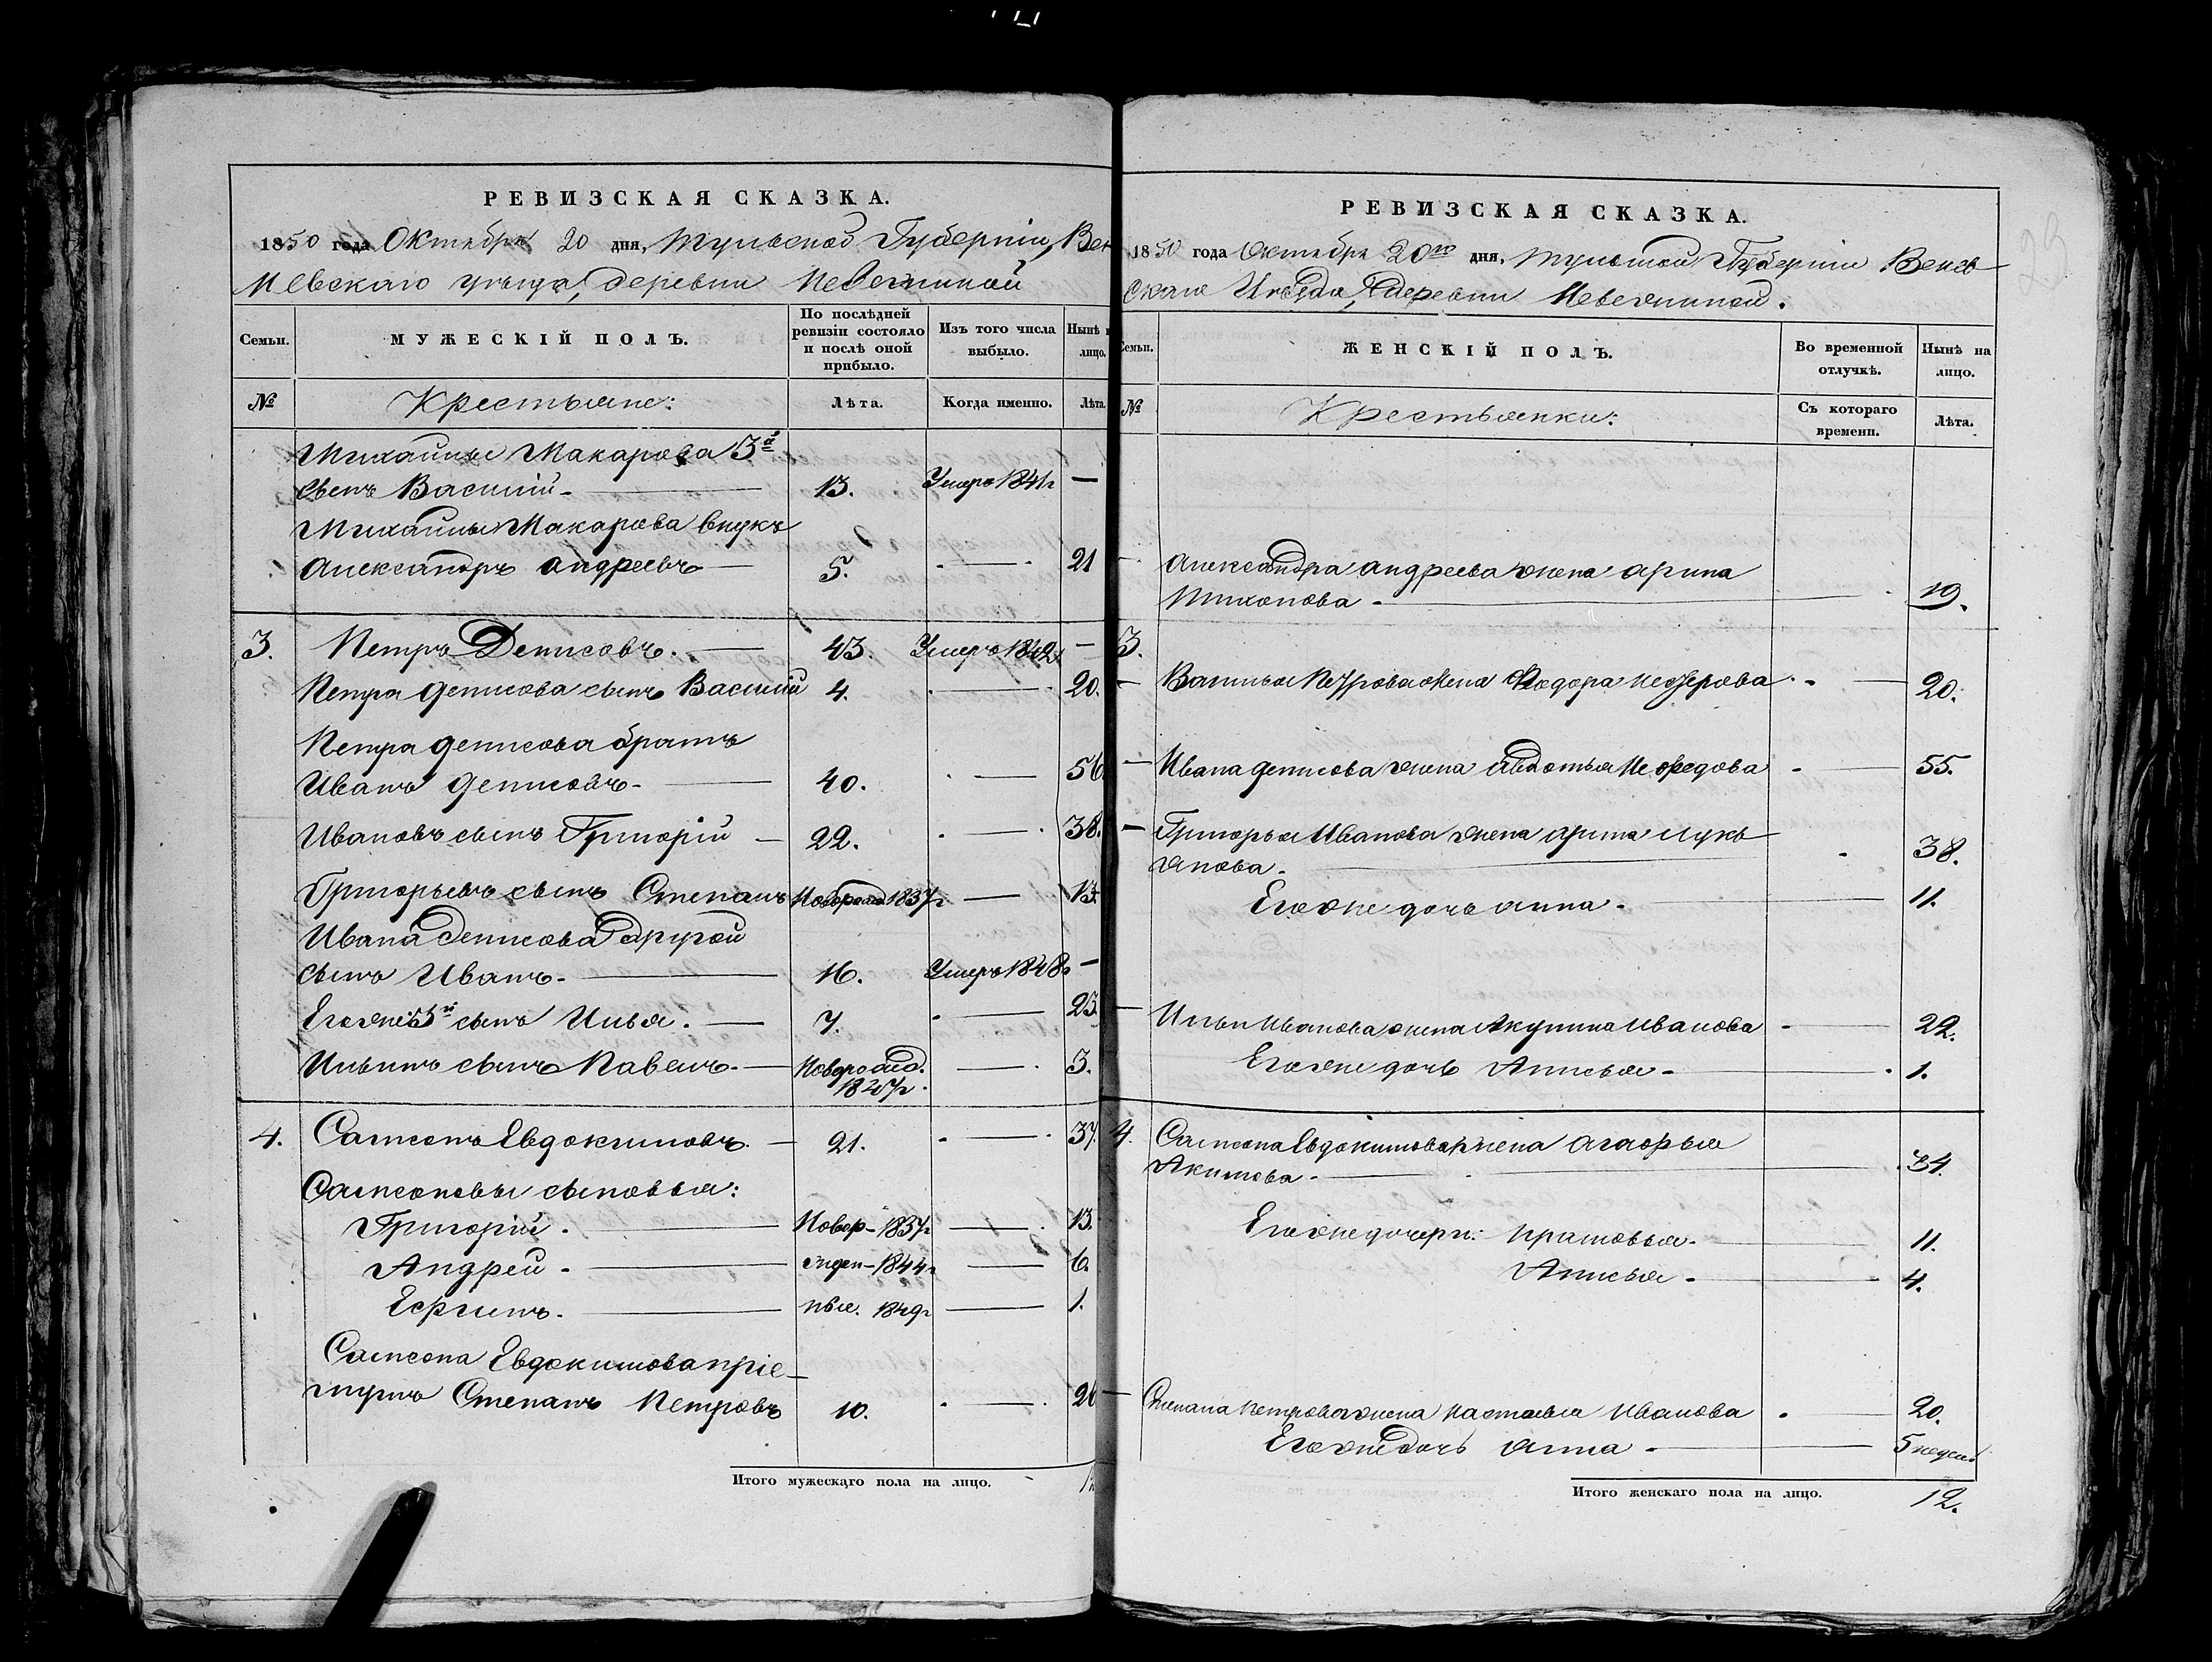 РЕВИЗСКАЯ СКАЗКА.
1850 года Октября 20 дня, Тульской Губерніи, Вен
невскаго уѣзда, деревни
Семьи. МУЖЕСКІЙ ПОЛЪ. По послѣдней ревизіи состояло и послѣ оной прибыло. Изъ того числа выбыло. Нынѣ на лицо.
№ Крестьяне: Лѣта. Когда именно. Лѣта.
Михайлы Макарова 3й
сынъ Василій - 13. Умеръ 1841г —
Михайлы Макарова внукъ
Александръ Андреевъ 5. 21
3. Петръ Денисовъ. 43. Умеръ 1842г —
Петра Денисова сынъ Василій 4. 20.
Петра Денисова братъ
Иванъ Денисовъ - 40. 56
Ивановъ сынъ Григорій 22. 38.
Григорьевъ сынъ Степанъ Новорожд 1837г 13
Ивана Денисова другой
сынъ Иванъ. 16. Умеръ 1848г —
Егоже 3й сынъ Илья. 7. 23
Ильинъ сынъ Павелъ. Новорожд. 1847г. 3.
4. Самсонъ Евдокимовъ. 21. 37.
Самсоновы сыновья:
Григорій. Новор- 1837г 13
Андрей - 1844г 6.
Ефимъ. 1849г 1.
Самсона Евдокимова пріе-
мышъ Степанъ Петровъ 10. 26
Итого мужескаго пола на лицо.
РЕВИЗСКАЯ СКАЗКА.
1850 года Октября 20го дня, Тульской Губерніи Венев-
скаго Уѣзда, деревни
Семьи. ЖЕНСКІЙ ПОЛЪ. Во временной отлучкѣ. Нынѣ на лицо.
№ Крестьянки: Съ котораго времени. Лѣта.
Александра Андреева жена Арина
Тихонова - 19.
3.
Василья Петрова жена Федора 20.
Ивана Денисова жена Авдотья Нефедова 55.
Григорья Иванова жена Арина Лукь-
янова. 38.
Егоже дочь Анна. 11.
Ильи Иванова жена Акулина Иванова 22.
Егоже дочь Анисья - 1.
4. Самсона Евдокимова жена Агафья
Акимова - 34.
Егоже дочери: Прасковья. 11.
Анисья - 4.
Степана Петрова жена Настасья Иванова 20.
Егоже дочь Анна - 5 недел.
Итого женскаго пола на лицо. 12.